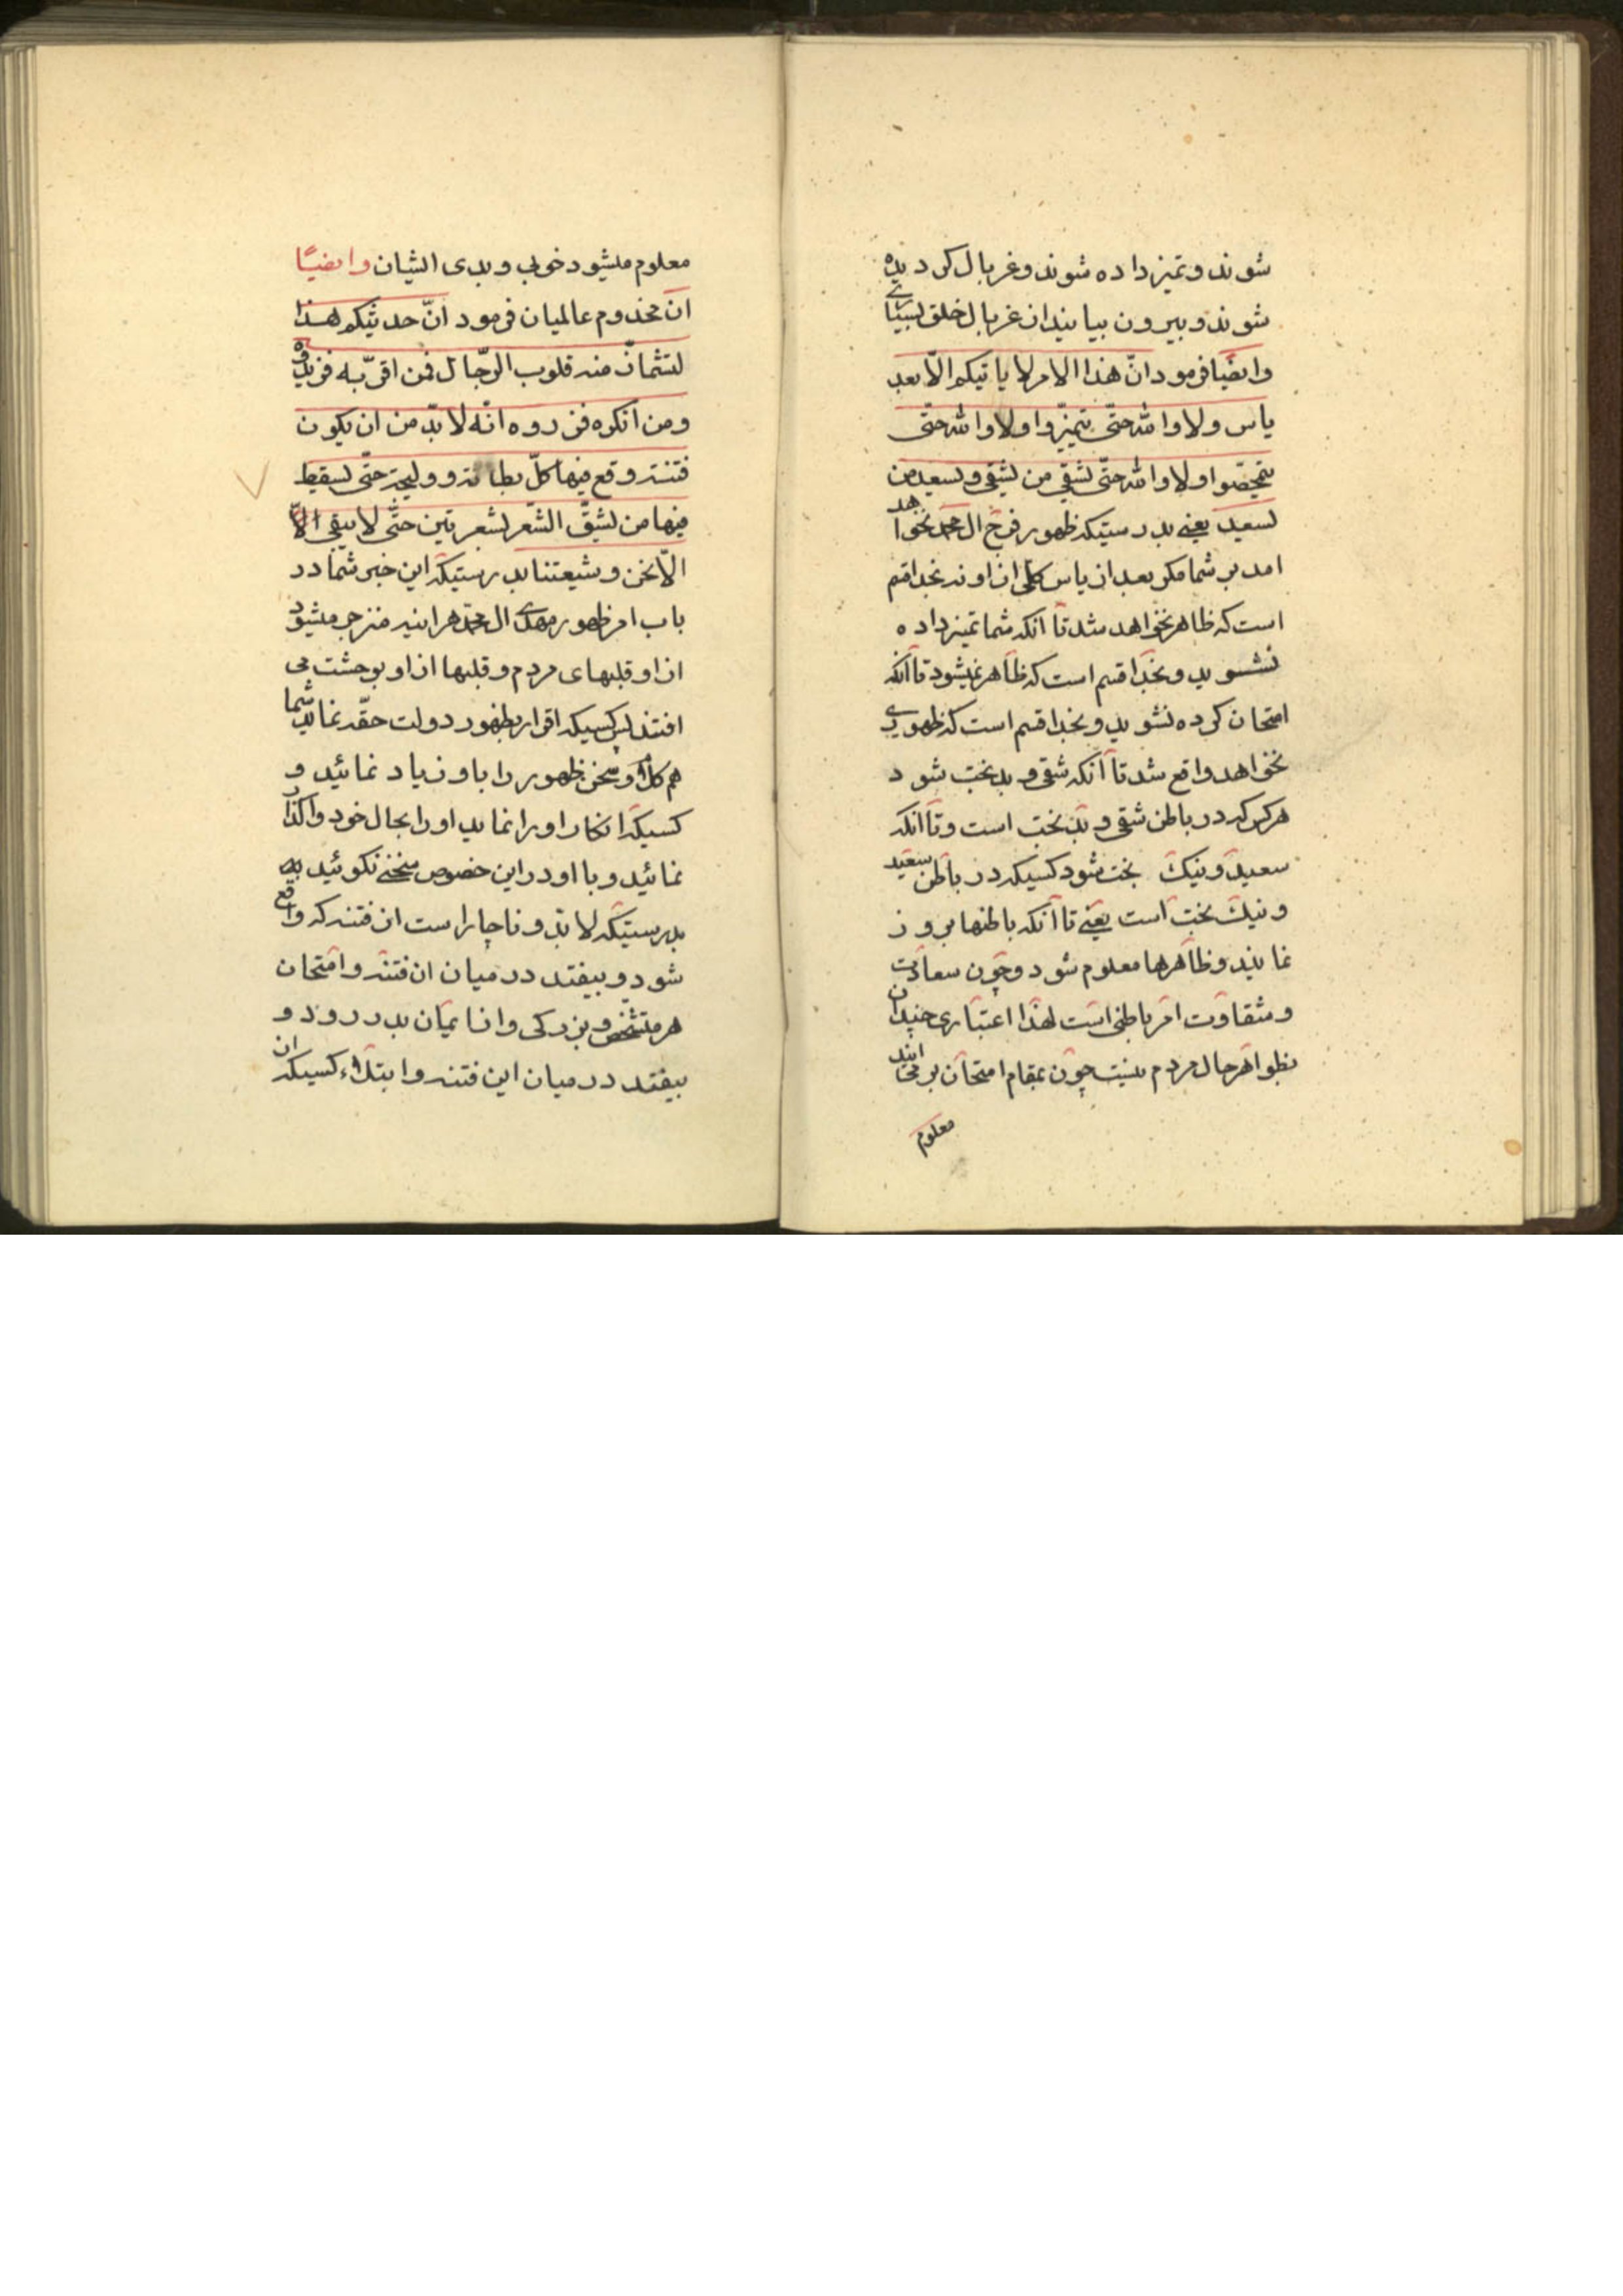 شوند و تمیز داده شوند و غربال کردیده
شوند و بیرون بیایند از غربال خلق بسیاری
وایضا فرمود انّ هذا الامر لا یاتیکم الّا بعد
یاس ولا والله حتّی تمیّزوا ولا والله حتّی
تمحّصوا ولا والله حتّی یشقی من یشقی و یسعد من
یسعد یعنی بدرستیکه ظهور فرج ال محمد نخواهد
امد بر شما مکر بعد از یاس کلی از او نه بخدا قسم
است که ظاهر نخواهد شد تا آنکه شما تمیز داده
نشوید و بخدا قسم است که ظاهر نمیشود تا آنکه
امتحان کرده نشوید و بخدا قسم است که ظهوری
نخواهد واقع شد تا آنکه شقی و بدبخت شود
هر کس که در باطن شقی و بدبخت است و تا آنکه
سعید و نیک بخت شود کسیکه در باطن سعید
و نیک بخت است یعنی تا آنکه باطنها بروز
نمایند و ظاهرها معلوم شود و چون سعادت
و شقاوت امر باطنی است لهذا اعتباری چندان
بظواهر حال مردم نیست چون بمقام امتحان بر می ایند
معلوم
معلوم میشود خوبی و بدی ایشان وایضًا
ان مخدوم عالمیان فرمود انّ حدیثکم هذا
لتشمأزّ منه قلوب الرّجال فمن اقرّ به فزیدوه
ومن انکره فذروه انّه لا بدّ من ان یکون
فتنة وقع فیها کلّ بطانة و ولیجة حتّی یسقط
فیها من یشقّ الشّعر بشعرتین حتّی لا یبقی الاّ
الّا نحن و شیعتنا بدرستیکه این خبر شما در
باب امر ظهور مهدی ال محمد هراینه منزجر میشود
از او قلبهای مردم و قلبها از او بوحشت می
افتند پس کسیکه اقرار بظهور دولت حقّه نماید شما
هم کلام و سخن ظهور را با او زیاد نمائید و
کسیکه انکار او را نماید او را بحال خود واکذارید
نمائید و با او در این خصوص سخنی نکوئید به
بدرستیکه لابد و ناچار است از فتنه که واقع
شود و بیفتد در میان ان فتنه و امتحان
هر متشخص و بزرکی و از ایمان بدر رود و
بیفتد در میان این فتنه و ابتلاء کسیکه ان